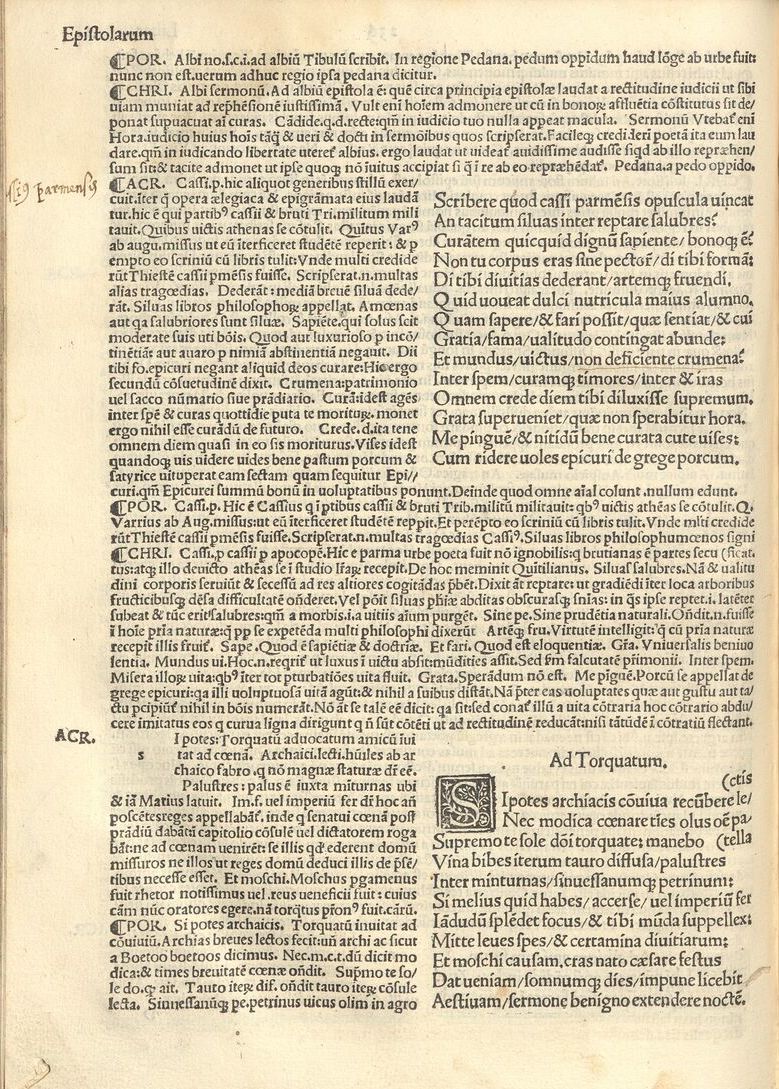 Epistolarum
¶POR. Albi no.s.c.i.ad albiū Tibulū scribit. In regione Pedana, pedum oppidum haud lōge ab urbe fuit:
nunc non est.uerum adhuc regio ipsa pedana dicitur.
¶CHRI. Albi sermonū. Ad albiū epistola ē: quē circa principia epistolæ laudat a rectitudine iudicii ut sibi
uiam muniat ad reph̄ēsionē iustissimā. Vult eni hoīem admonere ut cū in bonoꝝ affluētia cōstitutus sit de/
ponat supuacuat aī curas. Cādide.q.d.recte:qm̄ in iudicio tuo nulla appeat macula. Sermonū Vtebat̄ eni
Hora.iudicio huius hoīs tāq̄ & ueri & docti in sermoībus quos scripserat. Facileqꝫ
dare.qm̄ in iudicando libertate uteret̄ albius. ergo laudat ut uideat̄ auidissime audisse siqd ab illo repræhen/
sum sit:& tacite admonet ut ipse quoqꝫ nō īuitus accipiat si q̄ ī re ab eo repræhēdat̄. Pedana.a pedo oppido.
parmensis
¶ACR. Cassi.p.hic aliquot generibus stillū exer/
cuit.īter q̄ opera ælegiaca & epigrāmata eius laudā
tur.hic ē qui partibꝰ cassii & bruti Tri.militum mili
tauit. Quibus uictis athenas se cōtulit. Quītus Varꝰ
ab augu.missus ut eū īterficeret studētē reperit: & p
empto eo scriniū cū libris tulit: Vnde multi credide
rūt Thiestē cassii pmēsis fuisse. Scripserat.n.multas
alias tragœdias. Dederāt: mediā breuē siluā dede/
rāt. Siluas libros philosophoꝝ appellat. Amœnas
aut qa salubriores sunt siluæ. Sapiēte.qui solus scit
moderate suis uti bōis. Quod aut luxurioso p incō/
tinētiā: aut auaro p nimiā abstinentiā negauit. Dii
tibi fo.epicuri negant aliquid deos curare: Hic ergo
secundū cōsuetudinē dixit. Crumena: patrimonio
uel sacco nūmario siue prædiario. Curā: idest agēs
inter spē & curas quottidie puta te morituꝝ. monet
ergo nihil esse curādū de futuro. Crede.d.ita tene
omnem diem quasi in eo sis moriturus. Vises idest
quandoqꝫ uis uidere uides bene pastum porcum &
satyrice uituperat eam sectam quam sequitur Epi/
Scribere quod cassi parmēsis opuscula uincat
An tacitum siluas inter reptare salubres?
Curātem quicquid dignū sapiente/bonoqꝫ ē?
Non tu corpus eras sine pectore/di tibi formā:
Di tibi diuitias dederant/artemqꝫ fruendi.
Quid uoueat dulci nutricula maius alumno.
Quam sapere/& fari possit/quæ sentiat/& cui
Gratia/fama/ualitudo contingat abunde:
Et mundus/uictus/non deficiente crumena?
Inter spem/curamqꝫ timores/inter & iras
Omnem crede diem tibi diluxisse supremum.
Grata superueniet/quæ non sperabitur hora.
Me pinguē/& nitidū bene curata cute uises:
Cum ridere uoles epicuri de grege porcum.
curi.qm̄ Epicurei summū bonū in uoluptatibus ponunt. Deinde quod omne aīal colunt.nullum edunt.
¶POR. Cassi.p. Hic ē Cassius q ī ptibus cassii & bruti Trib.militū militauit: qbꝰ uictis athēas se cōtulit. Q.
Varrius ab Aug.missus: ut eū īterficeret studētē reppit. Et perēpto eo scriniū cū libris tulit. Vnde mlti credide
rūt Thiestē cassii pmēsis fuisse. Scripserat.n.multas tragœdias Cassiꝰ. Siluas libros philosophumœnos signi
¶CHRI. Cassi.p cassii p apocopē. Hic e parma urbe poeta fuit nō ignobilis: q brutianas ē partes secu (ficat.
tus: atqꝫ illo deuicto athēas se ī studio recepit. De hoc meminit Quītilianus. Siluas salubres. Nā & ualitu
dini corporis seruiūt & secessū ad res altiores cogitādas p̄bēt. Dixit āt reptare: ut gradiēdi īter loca arboribus
fructicibusqꝫ dēsa difficultatē oñderet. Vel pōit siluas abditas obscurasqꝫ snias: in qs ipse reptet.i.latētet
subeat & tūc erit salubres: qm̄ a morbis.i.a uitiis aīum purgēt. Sine pe. Sine prudētia naturali. Oñdit.n.fuisse
ī hoīe pria naturæ: q̄ pp se expetēda multi philosophi dixerūt Artēqꝫ fru. Virtutē intelligit: q̄ cū pria naturæ
recepit illis fruit̄. Sape. Quod ē sapiētiæ & doctriæ. Et fari. Quod est eloquentiæ. Gra. Vniuersalis beniuo
lentia. Mundus ui. Hoc.n.reqrit̄ ut luxus ī uictu absit: mūdities assit. Sed falcutatē Inter spem.
Misera illoꝝ uita: qbꝰ īter tot pturbatiōes uita fluit. Grata. Sperādum nō est. Me pīguē. Porcū se appellat de
grege epicuri: qa illi uoluptuosā uitā agūt: & nihil a suibus distāt. Nā pter eas uoluptates quæ aut gustu aut ta/
ctu pcipiūt̄ nihil in bōis numerāt. Nō āt se talē eē dicit: qa sit: sed conat̄ illū a uita cōtraria hoc cōtrario abdu/
cere imitatus eos q curua ligna dirigunt q n̄ sūt cōtēti ut ad rectitudinē reducāt: nisi tātūdē ī cōtratiū flectant.
ACR.
I potes: Torquatū aduocatum amicū īui
s tat ad cœnā. Archaici.lecti.hūiles ab ar
chaico fabro.q nō magnæ staturæ dr̄ eē.
Palustres: palus ē iuxta miturnas ubi
& iā Marius latuit. Im.f.uel imperiū fer dr̄ hoc añ
poscētes reges appellabāt̄. inde q senatui cœnā post
prādiū dabāt ī capitolio cōsulē uel dictatorem roga
bāt: ne ad cœnam uenirēt: se illis qd ederent domū
missuros ne illos ut reges domū deduci illis de psē/
tibus necesse esset. Et moschi. Moschus pgamenus
fuit rhetor notissimus uel.reus ueneficii fuit: cuius
cām nūc oratores egere.nā torq̄tus fuit.carū.
¶POR. Si potes archaicis. Torquatū inuitat ad
cōuiuiū. Archias breues lectos fecit: uñ archi ac sicut
a Boetoo boetoos dicimus. Nec.m.c.t.dū dicit mo
dica: & times breuitatē cœnæ oñdit. Supmo te so/
le do.qꝫ ait. Tauto iteꝝ dif. oñdit tauro iteꝝ cōsule
lecta. Sinuessanūqꝫ pe.petrinus uicus olim in agro
Ad Torquatum.
(ctis
SIpotes archiacis cōuiua recūbere le/
Nec modica cœnare ties olus oē pa/
Supremo te sole dōi torquate: manebo (tella
Vina bibes iterum tauro diffusa/palustres
Inter minturnas/sinuessanumqꝫ petrinum:
Si melius quid habes/accerse/uel imperiū fer
Iādudū splēdet focus/& tibi mūda suppellex:
Mitte leues spes/& certamina diuitiarum:
Et moschi causam.cras nato cæsare festus
Dat ueniam/somnumqꝫ dies/impune licebit
Aestiuam/sermone benigno extendere noctē.